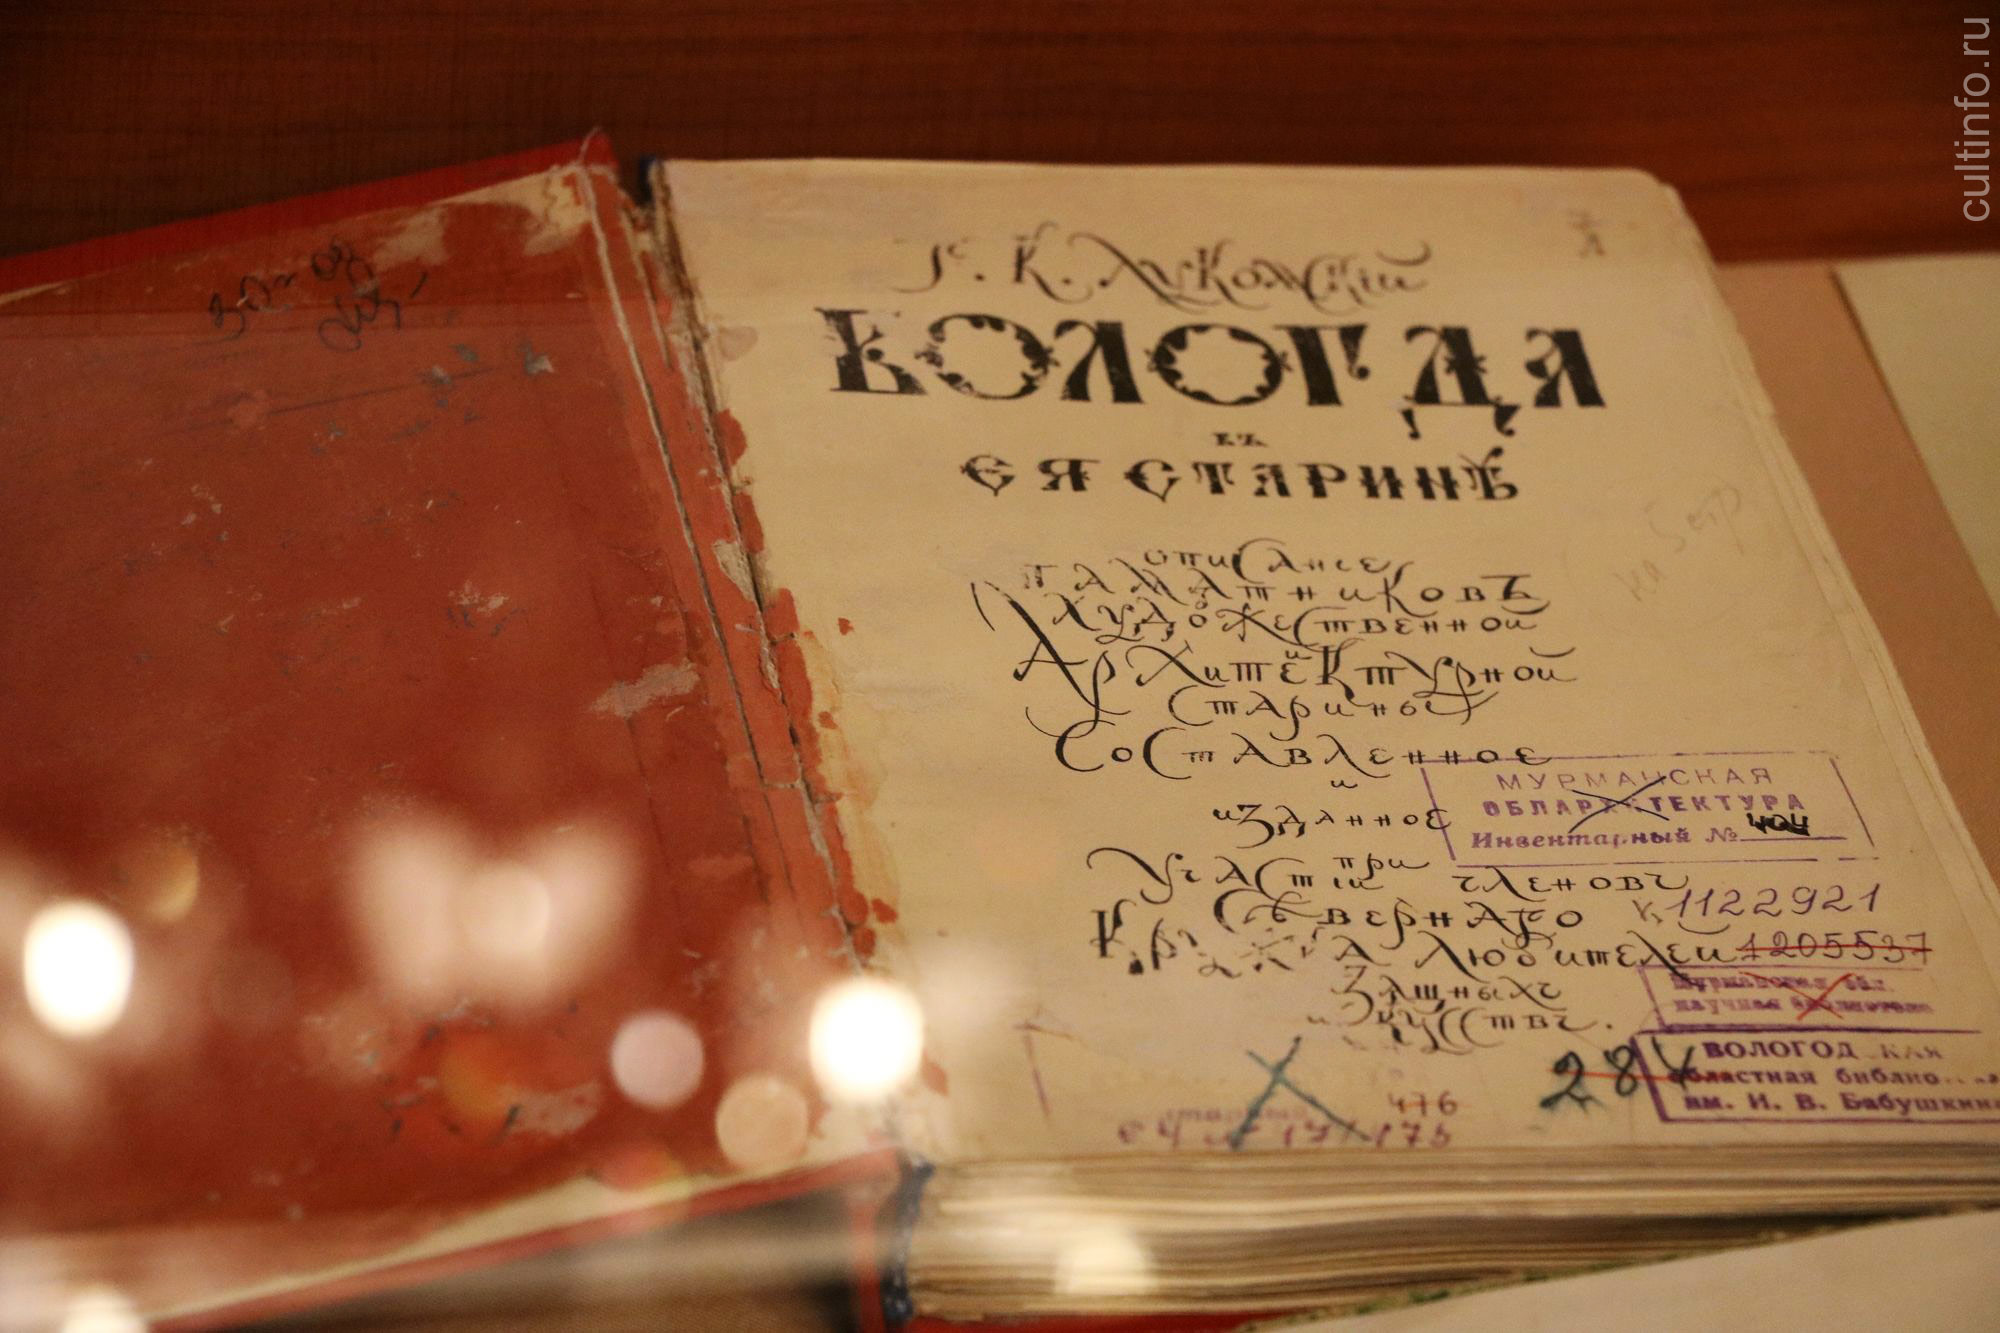 cultinfo.ru
Г. К. Лукомскій
ВОЛОГДА
въ
ея старинѣ
описаніе
памятниковъ
художественной
и
архитектурной
старины
составленное
и
изданное
при
участіи членовъ
Сѣвернаго
кружка любителей
изящныхъ
искусствъ.
МУРМАНСКАЯ
ОБЛАРХИТЕКТУРА
Инвентарный № 404
1122921
1205537
Мурманская обл.
научная библиотека
284
ВОЛОГОДСКАЯ
областная библио
им. И. В. Бабушкина
476